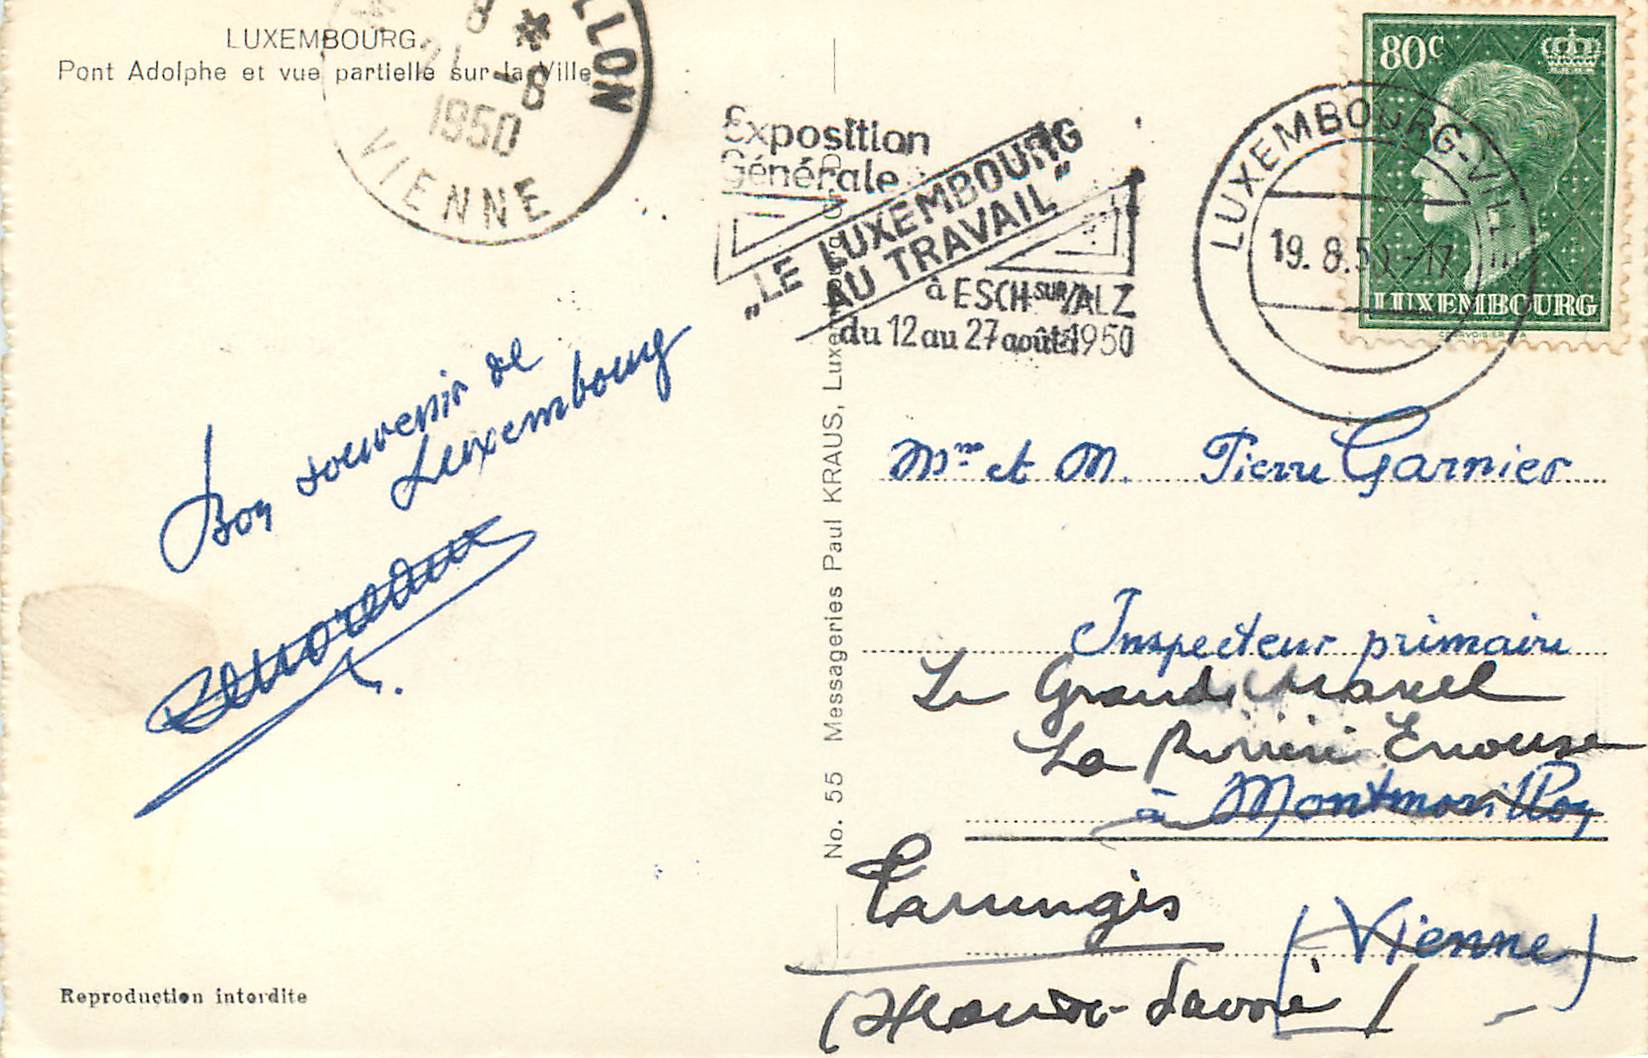 LUXEMBOURG.
Pont Adolphe et vue partielle sur la Ville
LLON
21 - 8
1950
VIENNE
Exposition
Générale
„LE LUXEMBOURG
AU TRAVAIL"
à ESCH-SUR/ALZ
du 12 au 27 août 1950
LUXEMBOURG-VILLE
19.8.50.-17
80c
LUXEMBOURG
COURVOISIER S.A.
Bon souvenir de
Luxembourg
No. 55 Messageries Paul KRAUS,
Mme et M. Pierre Garnier
Inspecteur primaire
La
à Montmorillon
(Vienne)
(Haute-Savoie)
Reproduction interdite